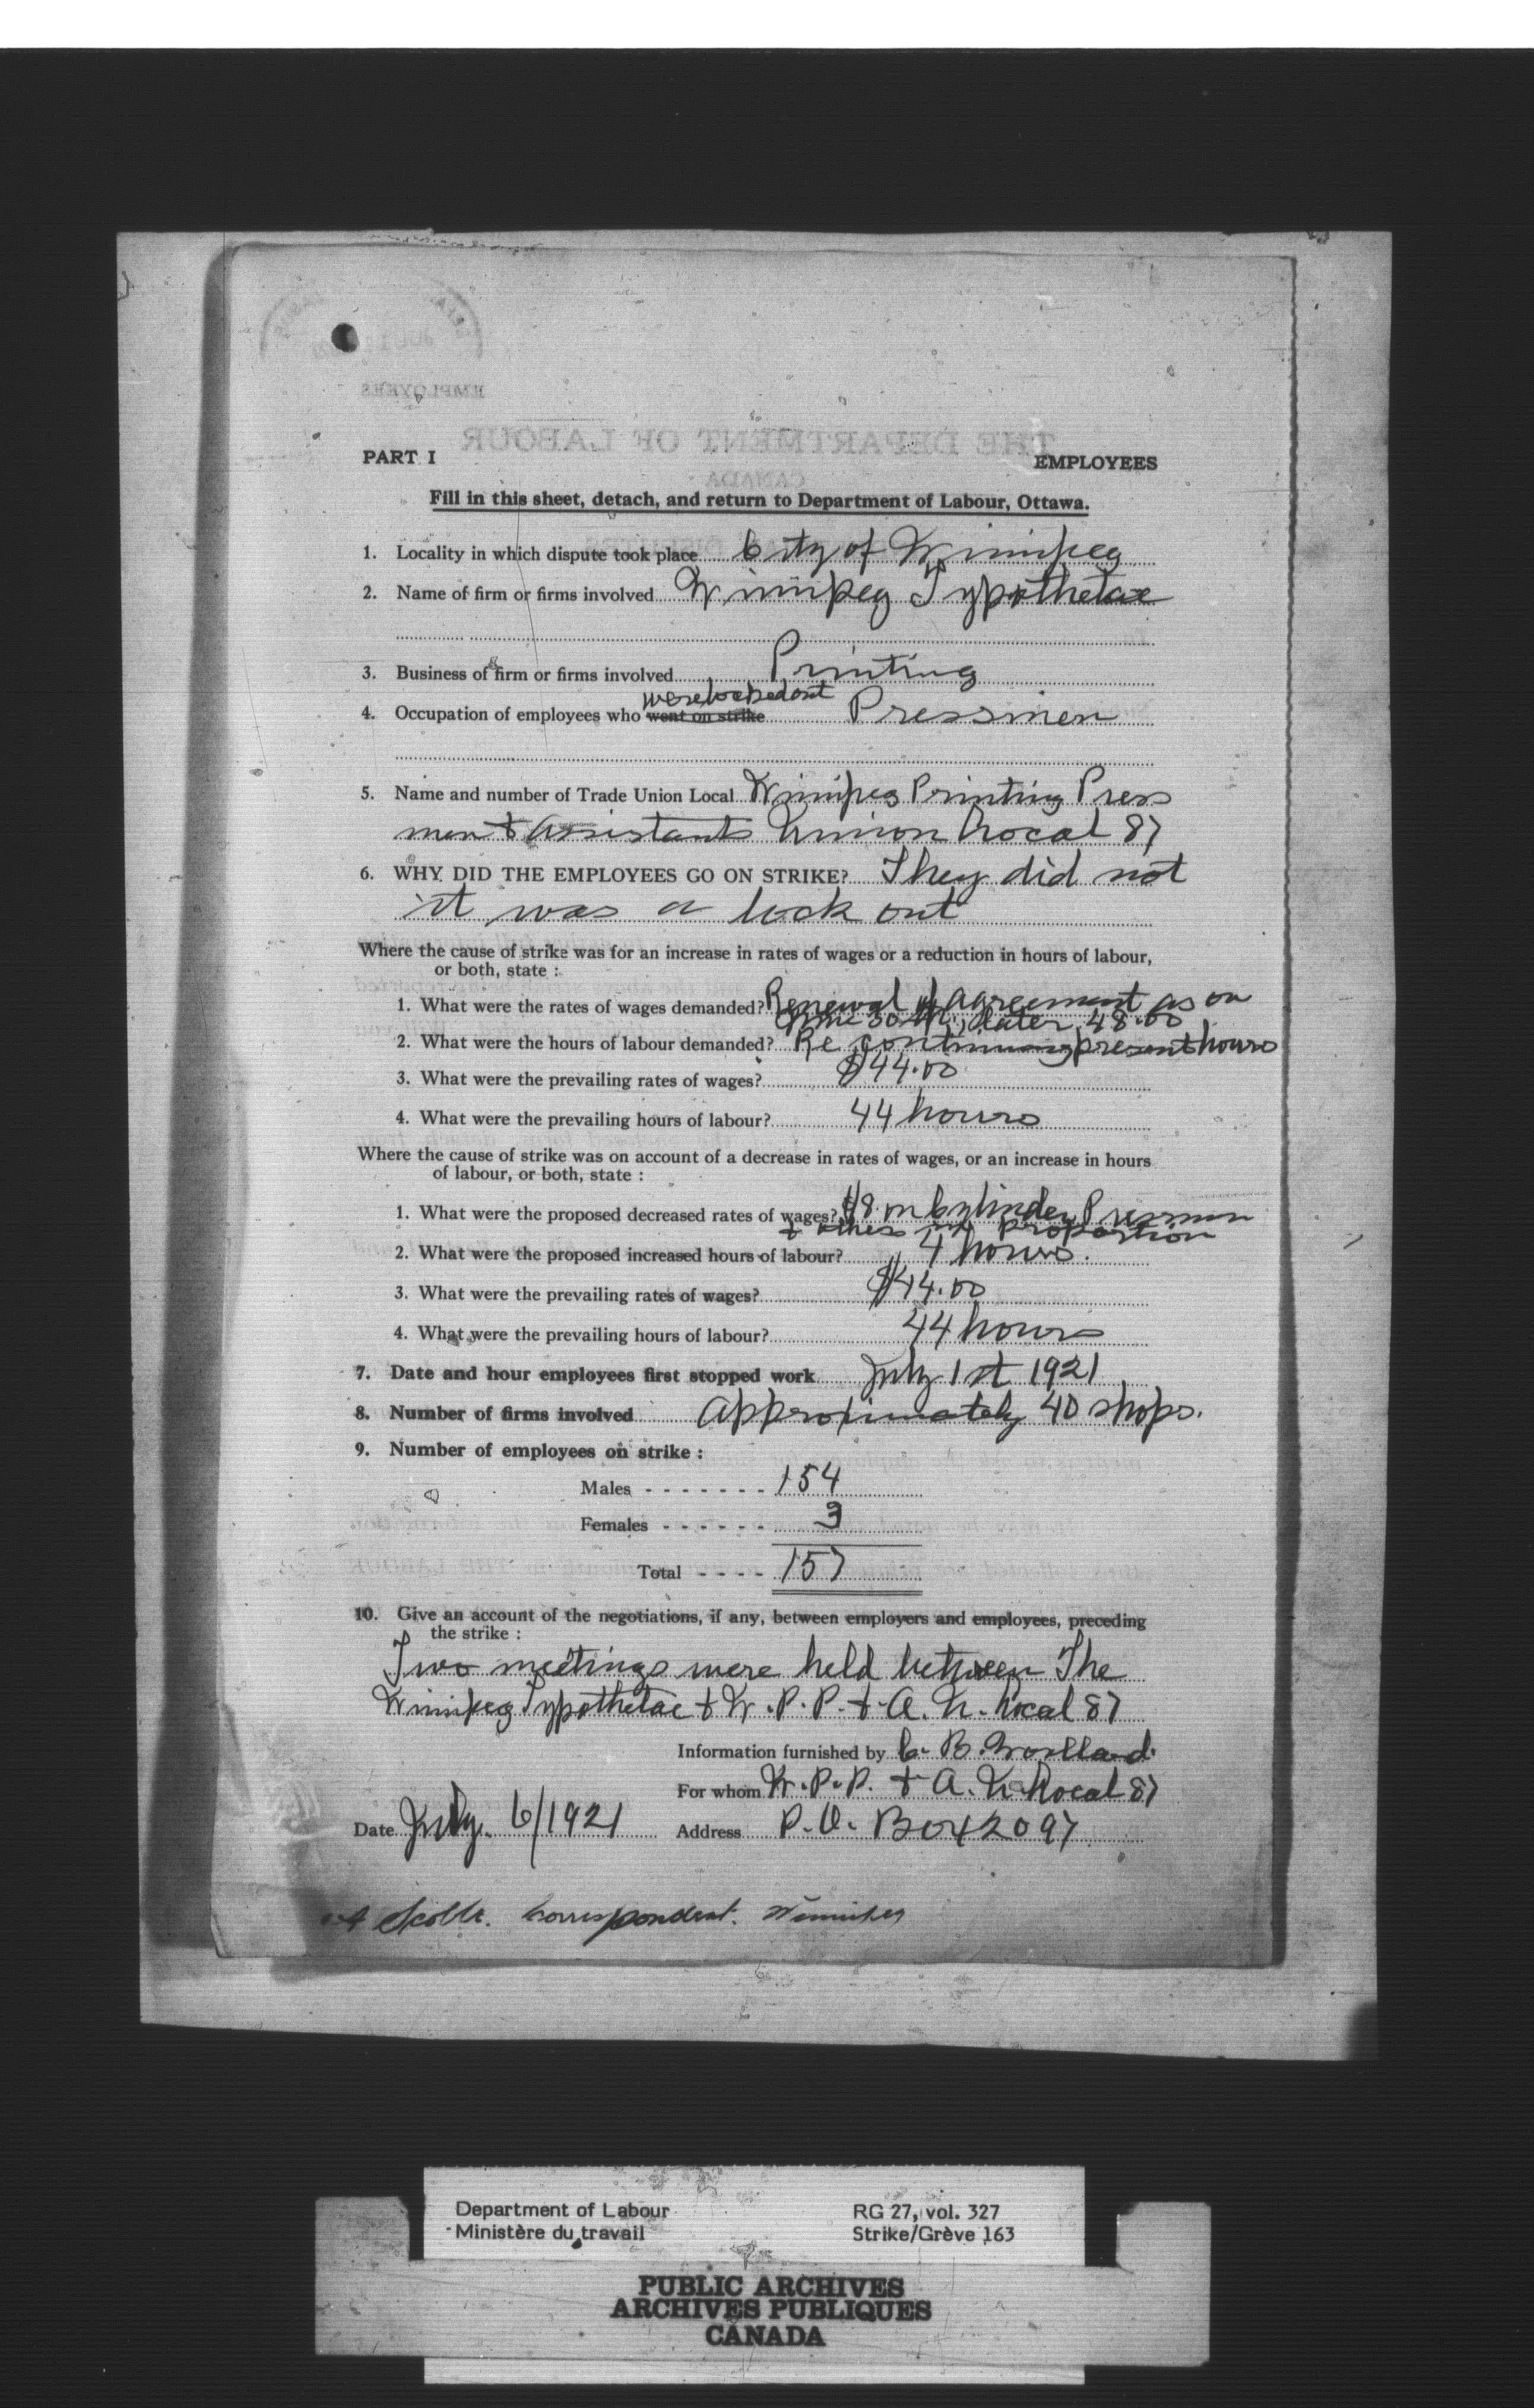 PART I
EMPLOYEES
Fill in this sheet, detach, and return to Department of Labour, Ottawa.
1. Locality in which dispute took place City of Winnipeg
2. Name of firm or firms involved Winnipeg Typothetae
3. Business of firm or firms involved Printing
were locked out
4. Occupation of employees who went on strike Pressmen
5. Name and number of Trade Union Local Winnipeg Printing Press
men & Assistants Union Local 87
6. WHY DID THE EMPLOYEES GO ON STRIKE? They did not
it was a lock out
Where the cause of strike was for an increase in rates of wages or a reduction in hours of labour,
or both, state :
1. What were the rates of wages demanded? Renewal of agreement as on
June 30th, later 48.00
2. What were the hours of labour demanded? Re continuing present hours
3. What were the prevailing rates of wages? $44.00
4. What were the prevailing hours of labour? 44 hours
Where the cause of strike was on account of a decrease in rates of wages, or an increase in hours
of labour, or both, state :
1. What were the proposed decreased rates of wages? $8. on Cylinder Pressmen
& others in proportion
2. What were the proposed increased hours of labour? 4 hours.
3. What were the prevailing rates of wages? $44.00
4. What were the prevailing hours of labour? 44 hours
7. Date and hour employees first stopped work July 1st 1921
8. Number of firms involved Approximately 40 shops.
9. Number of employees on strike :
Males - - - - - - - 154
Females - - - - - - 3
Total - - - - 157
10. Give an account of the negotiations, if any, between employers and employees, preceding
the strike :
Two meetings were held between The
Winnipeg Typothetae & W. P. P. & A. U. Local 87
Information furnished by C. B.
For whom W. P. P. & A. U. Local 87
Date July. 6/1921 Address P. O. Box 2097
Correspondent. Winnipeg
Department of Labour
Ministère du travail
RG 27, vol. 327
Strike/Grève 163
PUBLIC ARCHIVES
ARCHIVES PUBLIQUES
CANADA